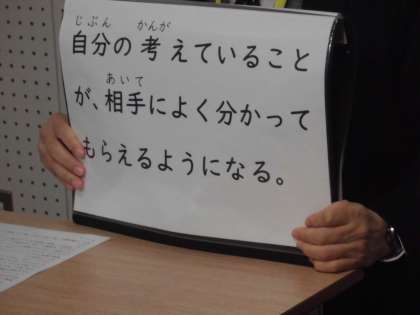 じぶん かんが
自分の考えていること
あいて
が、相手によく分かって
もらえるようになる。